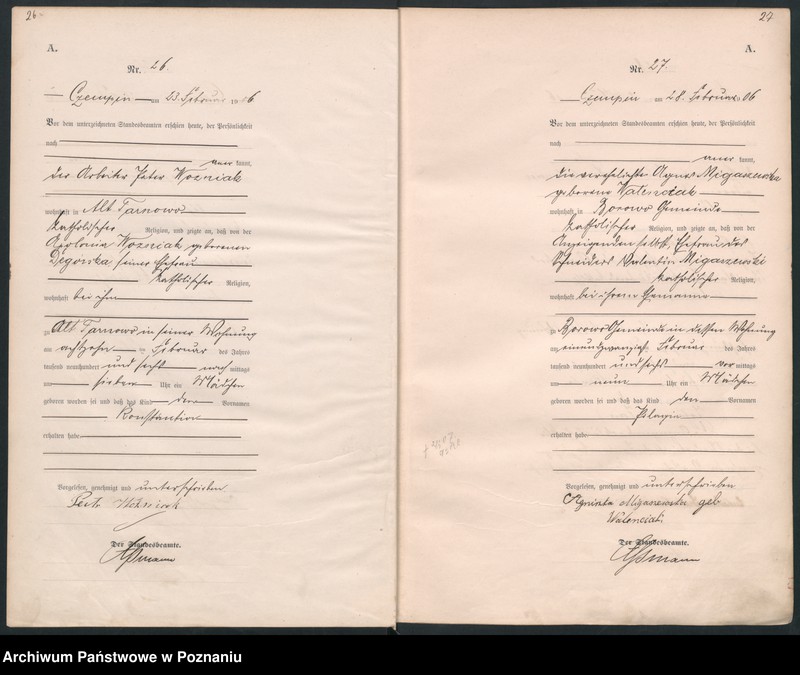 26
A.
Nr. 26
Czempin am 23. Februar 1906
Vor dem unterzeichneten Standesbeamten erschien heute, der Persönlichkeit
nach
aner kannt,
der Arbeiter Peter Wozniak
wohnhaft in Alt Tarnowo
katholischer Religion, und zeigte an, daß von der
Apolonia Wozniak geborenen
seiner Ehefrau
katholischer Religion,
wohnhaft bei ihm
zu Alt Tarnowo in seiner Wohnung
am achtzehn ten Februar des Jahres
tausend neunhundert und sechs nach mittags
um sieben Uhr ein Mädchen
geboren worden sei und daß das Kind den Vornamen
Konstantia
erhalten habe
Vorgelesen, genehmigt und unterschrieben
Piotr Wozniak
Der Standesbeamte.
27
A.
Nr. 27.
Czempin am 28. Februar 1906
Vor dem unterzeichneten Standesbeamten erschien heute, der Persönlichkeit
nach
aner kannt,
die verehelichte Agnes Migaszewska
geborene
wohnhaft in Borowo Gemeinde
katholischer Religion, und zeigte an, daß von der
Anzeigenden selbst, Ehefrau des
Schneiders Valentin Migaszewski
katholischer Religion,
wohnhaft bei ihrem Ehemanne
zu Borowo Gemeinde in dessen Wohnung
am einundzwanzigsten Februar des Jahres
tausend neunhundert und sechs vor mittags
um neun Uhr ein Mädchen
geboren worden sei und daß das Kind den Vornamen
Pelagia
erhalten habe
Vorgelesen, genehmigt und unterschrieben
Migaszewska geb
Der Standesbeamte.
Archiwum Państwowe w Poznaniu